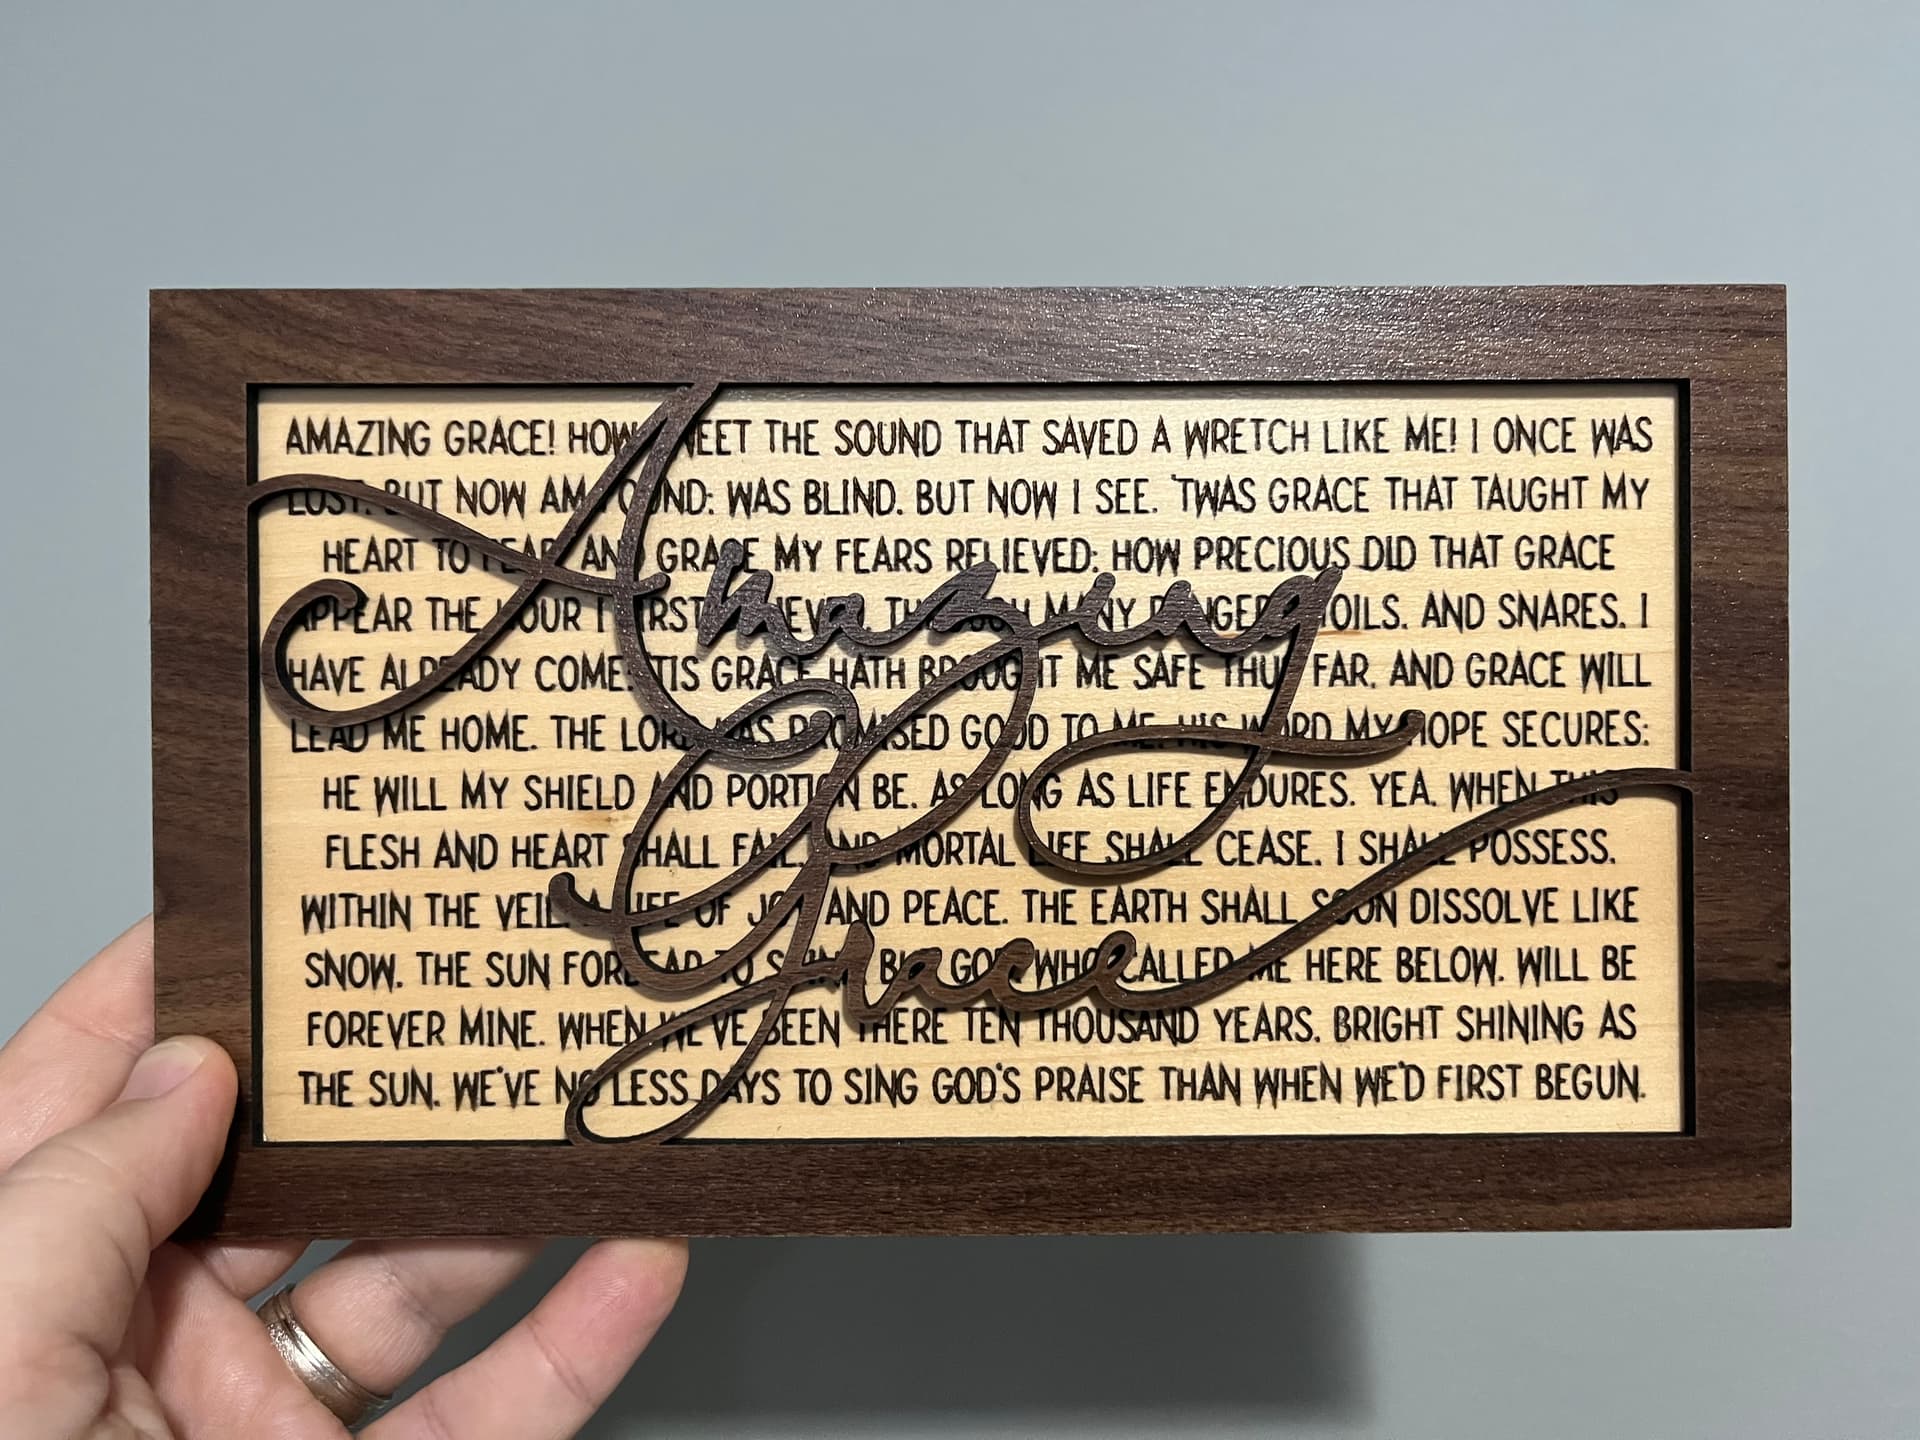 AMAZING GRACE! HOW SWEET THE SOUND THAT SAVED A WRETCH LIKE ME! I ONCE WAS
LOST. BUT NOW AM FOUND: WAS BLIND. BUT NOW I SEE. 'TWAS GRACE THAT TAUGHT MY
HEART TO FEAR. AND GRACE MY FEARS RELIEVED: HOW PRECIOUS DID THAT GRACE
APPEAR THE HOUR I FIRST BELIEVED. THROUGH MANY DANGERS. TOILS. AND SNARES. I
HAVE ALREADY COME: 'TIS GRACE HATH BROUGHT ME SAFE THUS FAR. AND GRACE WILL
LEAD ME HOME. THE LORD HAS PROMISED GOOD TO ME. HIS WORD MY HOPE SECURES:
HE WILL MY SHIELD AND PORTION BE. AS LONG AS LIFE ENDURES. YEA. WHEN THIS
FLESH AND HEART SHALL FAIL. AND MORTAL LIFE SHALL CEASE. I SHALL POSSESS.
WITHIN THE VEIL. A LIFE OF JOY AND PEACE. THE EARTH SHALL SOON DISSOLVE LIKE
SNOW. THE SUN FORBEAR TO SHINE: BUT GOD WHO CALLED ME HERE BELOW. WILL BE
FOREVER MINE. WHEN WE'VE BEEN THERE TEN THOUSAND YEARS. BRIGHT SHINING AS
THE SUN. WE'VE NO LESS DAYS TO SING GOD'S PRAISE THAN WHEN WE'D FIRST BEGUN.
Amazing
Grace